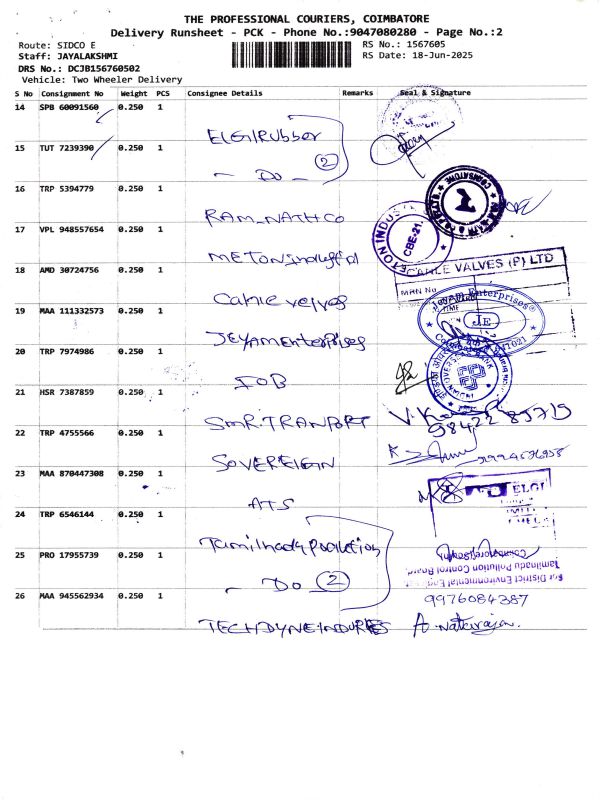 THE PROFESSIONAL COURIERS, COIMBATORE
Delivery Runsheet - PCK - Phone No.:9047080280 - Page No.:2
Route: SIDCO E
RS No.: 1567605
Staff: JAYALAKSHMI
RS Date: 18-Jun-2025
DRS No.: DCJB156760502
Vehicle: Two Wheeler Delivery
S No Consignment No Weight PCS Consignee Details Remarks Seal & Signature
14 SPB 60091560 0.250 1
ELGI Rubber
15 TUT 7239390 0.250 1
- Do - 2
16 TRP 5394779 0.250 1
RAM NATH CO
17 VPL 948557654 0.250 1
METON industrial
CBE-21.
18 AMD 30724756 0.250 1
Cable valves
CABLE VALVES (P) LTD
MRN No
TIME
19 MAA 111332573 0.250 1
JEYAM Enterprises
Jeyam Enterprises
JE
20 TRP 7974986 0.250 1
IOB
OVERSEAS BANK
21 HSR 7387859 0.250 1
SMR.TRANPORT
98422 85719
22 TRP 4755566 0.250 1
SOVEREIGN
23 MAA 870447308 0.250 1
ATS
ELGI
24 TRP 6546144 0.250 1
Tamilnadu Pollution
25 PRO 17955739 0.250 1
- Do 2
Coimbatore (South)
Tamilnadu Pollution Control Board
For District Environmental Eng
26 MAA 945562934 0.250 1
9976084387
TECHDYNE INDURES
A. Natarajan.